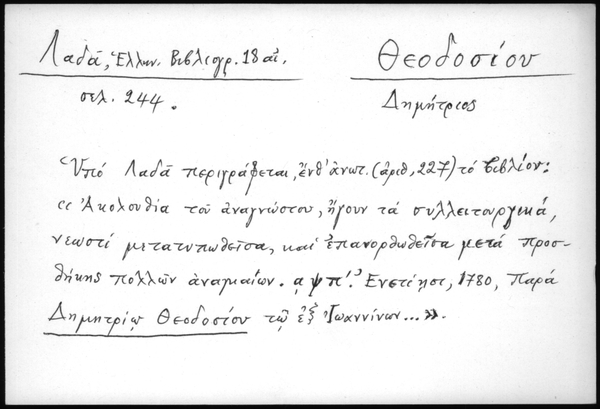 Λαδᾶ, Ἑλλην. Βιβλιογρ. 18 αἰ.
σελ. 244.
Θεοδοσίου
Δημήτριος
Ὑπό Λαδᾶ περιγράφεται, ἔνθ' ἀνωτ. (ἀριθ. 227) τό βιβλίον:
«Ἀκολουθία τοῦ ἀναγνώστου, ἤγουν τά συλλειτουργικά,
νεωστί μετατυπωθεῖσα, καί ἐπανορθωθεῖσα μετά προσ-
θήκης πολλῶν ἀναγκαίων. αψπ'. Ἐνετίησι, 1780, Παρά
Δημητρίῳ Θεοδοσίου τῷ ἐξ Ἰωαννίνων...».